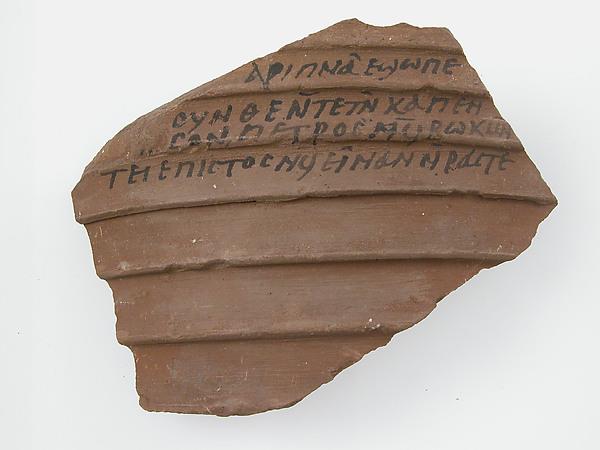 ⲁⲣⲓⲡⲛⲁ ⲉϣⲱⲡⲉ
ⲟⲩⲛ ⲑⲉ ⲛ̄ⲧⲉⲧⲛ̄ⲕⲁ ⲡⲉⲛ
ⲥⲟⲛ ⲡⲉⲧⲣⲟⲥ
ⲧⲉⲓⲉⲡⲓⲥⲧⲟⲥ ⲛϥⲉⲓ ⲛⲁⲛ ⲛ̄ⲣⲁⲥⲧⲉ